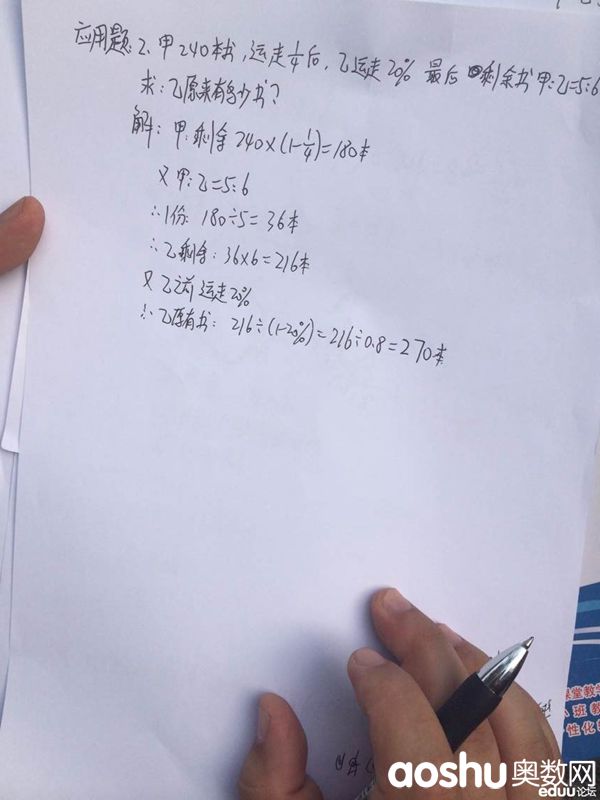 应用题:2、甲240本书,运走1/4后,乙运走20% 最后剩余书甲:乙=5:6
求:乙原来有多少书?
解:甲:剩余240×(1-1/4)=180本
又甲:乙=5:6
∴1份:180÷5=36本
∴乙剩余:36×6=216本
又乙之前运走20%
∴乙原有书:216÷(1-20%)=216÷0.8=270本
课堂教学
小班教
性化
aoshu奥数网
eduu论坛